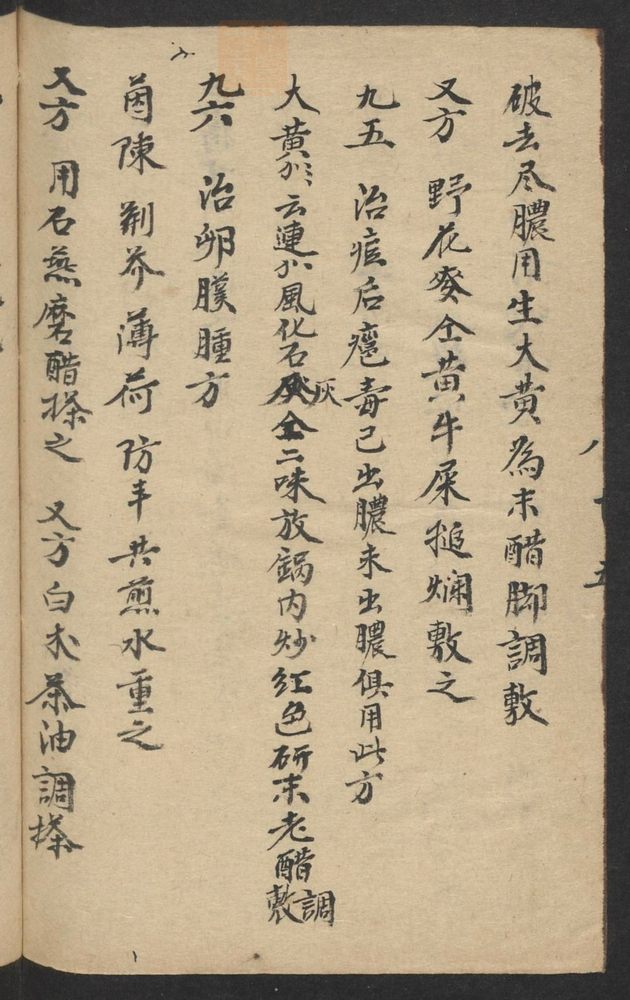 破去尽膿用生大黄為末醋脚調敷
又方 野花癸仝黄牛屎搥爛敷之
九五 治痘后瘟毒已出膿未出膿俱用此方
大黄 云連 風化石灰仝二味放鍋内炒红色研末老醋調敷
九六 治卵膜腫方
茵陳荆芥薄荷防丰共煎水重之
又方 用石燕磨醋搽之 又方白术茶油調搽